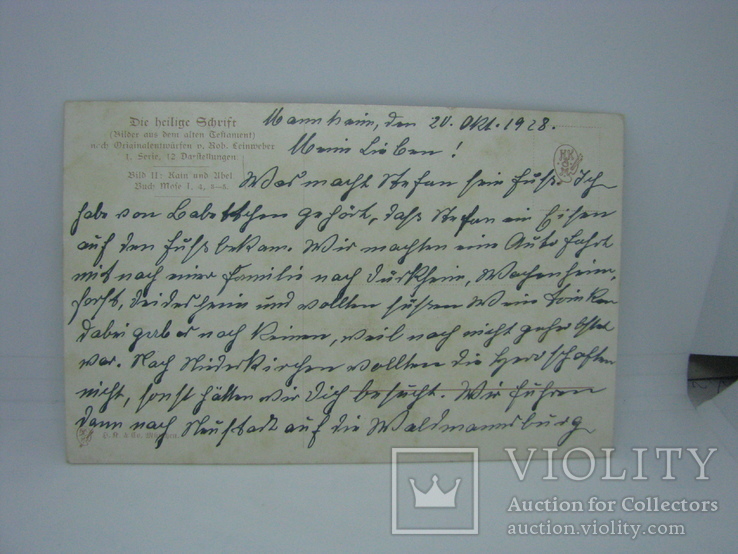 Die heilige Schrift
(Bilder aus dem alten Testament)
nach Originalentwürfen v. Rob. Leinweber
1. Serie, 12 Darstellungen
Bild II: Kain und Abel
Buch Mose I, 4, 3–8.
Mannheim, den 20. Okt. 1928.
Meine Lieben!
Was macht Stefan sein Fuß. Ich
habe von Babettchen gehört, daß Stefan ein Eisen
auf den Fuß bekam. Wir machten eine Autofahrt
mit noch einer Familie nach Dürkheim, Wachenheim,
Forst, Deidesheim und wollten süßen Wein trinken
dabei gab es noch keinen, weil noch nicht geherbstet
war. Nach Niederkirchen wollten die Herrschaften
nicht, sonst hätten wir Dich besucht. Wir fuhren
dann nach Neustadt auf die Waldmannsburg
VIOLITY
Auction for Collectors
auction.violity.com